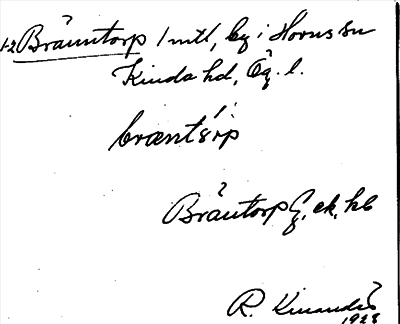 1-2 Bräuntorp 1 mtl, by i Horns sn
Kinda hd, Ög. l.
bræntsrp
Bräntorp G. ek. kb
R. Kinander
1928